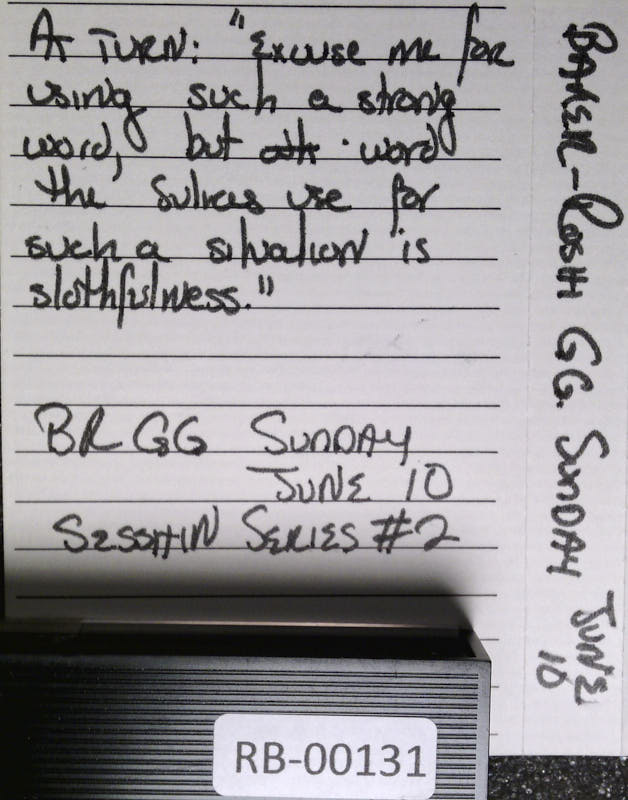 At TURN: "Excuse me for
using such a strong
word, but word
the Sutras use for
such a situation is
slothfulness."
BR GG SUNDAY
JUNE 10
SESSHIN SERIES #2
BAKER-ROSHI GG. SUNDAY JUNE
10
RB-00131